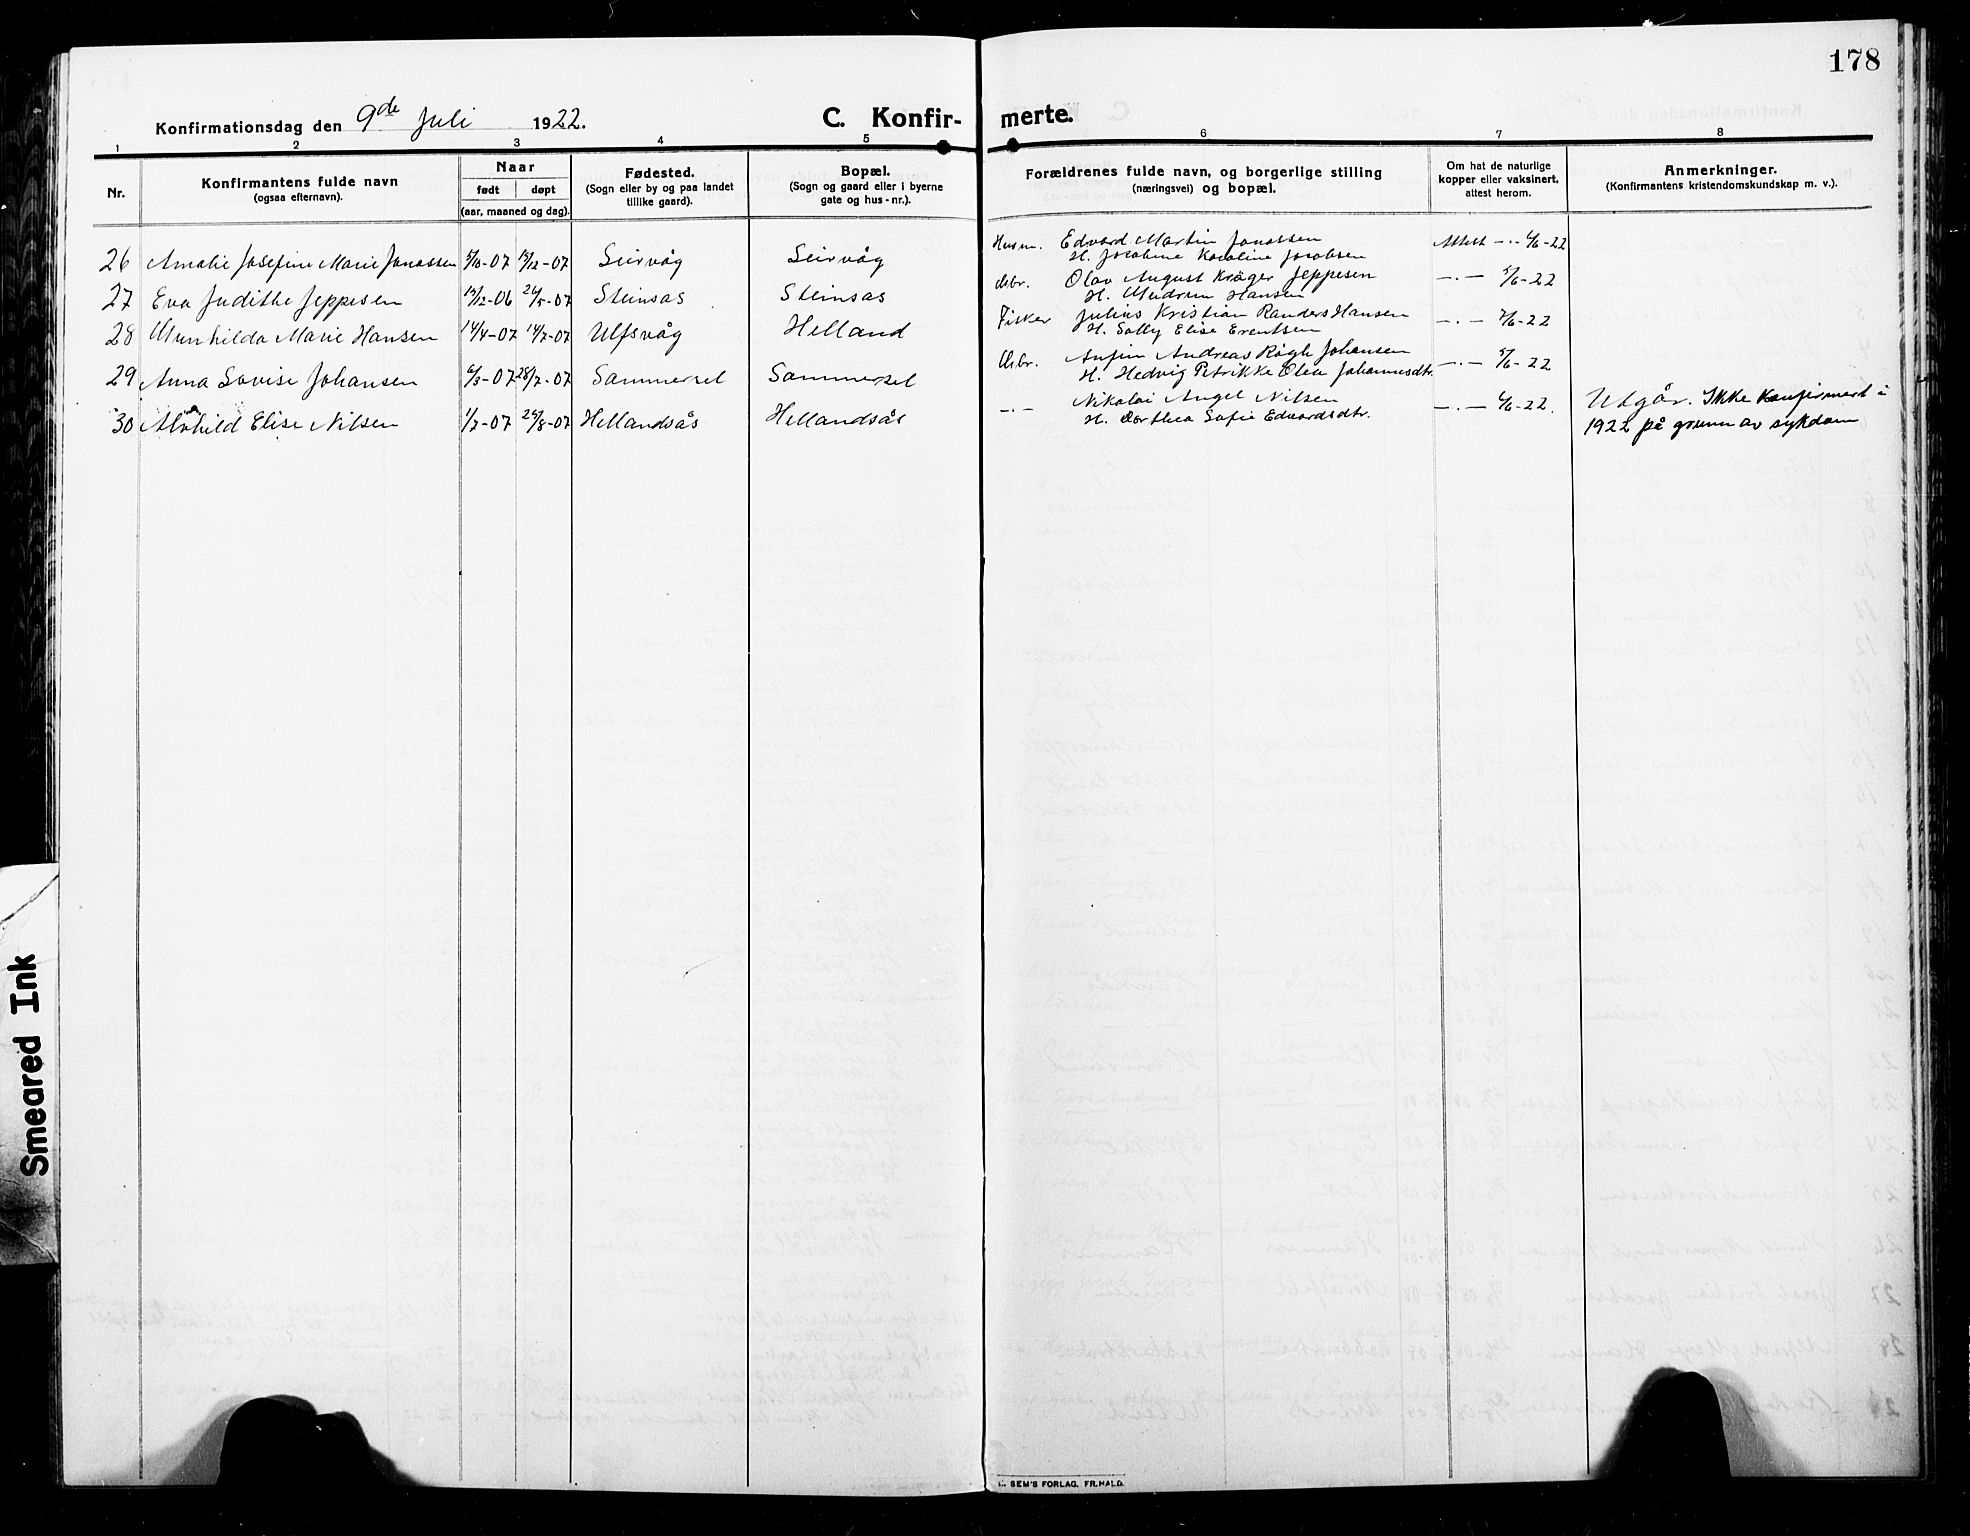 178
Konfirmationsdag den 9de Juli 1922.
C. Konfir- merte.
1 2 3 4 5 6 7 8
Nr.
Konfirmantens fulde navn
(ogsaa efternavn).
Naar
født døpt
(aar, maaned og dag).
Fødested.
(Sogn eller by og paa landet
tillike gaard).
Bopæl.
(Sogn og gaard eller i byerne
gate og hus-nr.).
Forældrenes fulde navn, og borgerlige stilling
(næringsvei) og bopæl.
Om hat de naturlige
kopper eller vaksinert,
attest herom.
Anmerkninger.
(Konfirmantens kristendomskundskap m. v.).
26 Amalie Josefine Marie Jonassen 5/10-07 15/12-07 Leirvåg Leirvåg Husm. Edvard Martin Jonassen
H. Jocobine Karoline Jacobsen Attest -"- 6/6-22
27 Eva Judithe Jeppesen 19/12-06 26/5-07 Steinsas Steinsas Arbr. Olav August Krøger Jeppesen
H. Gudrun Hansen -"- 5/6-22
28 Gunhilda Marie Hansen 14/4-07 14/7-07 Ulfsvåg Helland Fisker Julius Kristian Randers Hansen
H. Solly Elise Erentsen -"- 7/6-22
29 Anna Lovise Johansen 6/3-07 28/7-07 Sommersel Sommersel Arbr. Anfin Andreas Røgh Johansen
H. Hedvig Petrikke Olea Johannesdtr. -"- 5/6-22
30 Alvhild Elise Nilsen 1/7-07 25/8-07 Hellandsås Hellandsås -"- Nikolai Angel Nilsen
H. Dorthea Sofie Edvardsdtr. -"- 6/6-22. Utgår. Ikke konfirmert i
1922 på grunn av sykdom
Smeared Ink
SEM'S FORLAG, FR.HALD.